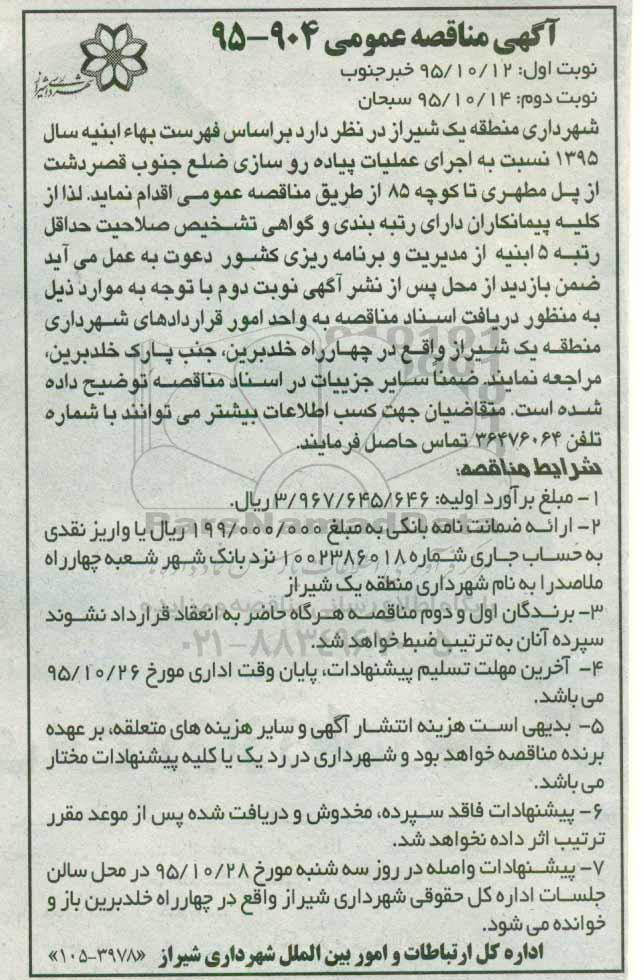 آگهی مناقصه عمومی ۹۰۴-۹۵
نوبت اول: ۹۵/۱۰/۱۲ خبرجنوب
نوبت دوم: ۹۵/۱۰/۱۴ سبحان
شهرداری منطقه یک شیراز در نظر دارد براساس فهرست بهاء ابنیه سال
۱۳۹۵ نسبت به اجرای عملیات پیاده رو سازی ضلع جنوب قصردشت
از پل مطهری تا کوچه ۸۵ از طریق مناقصه عمومی اقدام نماید. لذا از
کلیه پیمانکاران دارای رتبه بندی و گواهی تشخیص صلاحیت حداقل
رتبه ۵ ابنیه از مدیریت و برنامه ریزی کشور دعوت به عمل می آید
ضمن بازدید از محل پس از نشر آگهی نوبت دوم با توجه به موارد ذیل
به منظور دریافت اسناد مناقصه به واحد امور قراردادهای شهرداری
منطقه یک شیراز واقع در چهارراه خلدبرین، جنب پارک خلدبرین،
مراجعه نمایند. ضمناً سایر جزییات در اسناد مناقصه توضیح داده
شده است. متقاضیان جهت کسب اطلاعات بیشتر می توانند با شماره
تلفن ۳۶۴۷۶۰۶۴ تماس حاصل فرمایند.
شرایط مناقصه:
۱- مبلغ برآورد اولیه: ۳/۹۶۷/۶۴۵/۶۴۶ ریال.
۲- ارائه ضمانت نامه بانکی به مبلغ ۱۹۹/۰۰۰/۰۰۰ ریال یا واریز نقدی
به حساب جاری شماره ۱۰۰۲۳۸۶۰۱۸ نزد بانک شهر شعبه چهارراه
ملاصدرا به نام شهرداری منطقه یک شیراز
۳- برندگان اول و دوم مناقصه هرگاه حاضر به انعقاد قرارداد نشوند
سپرده آنان به ترتیب ضبط خواهد شد.
۴- آخرین مهلت تسلیم پیشنهادات، پایان وقت اداری مورخ ۹۵/۱۰/۲۶
می باشد.
۵- بدیهی است هزینه انتشار آگهی و سایر هزینه های متعلقه، بر عهده
برنده مناقصه خواهد بود و شهرداری در رد یک یا کلیه پیشنهادات مختار
می باشد.
۶- پیشنهادات فاقد سپرده، مخدوش و دریافت شده پس از موعد مقرر
ترتیب اثر داده نخواهد شد.
۷- پیشنهادات واصله در روز سه شنبه مورخ ۹۵/۱۰/۲۸ در محل سالن
جلسات اداره کل حقوقی شهرداری شیراز واقع در چهارراه خلدبرین باز و
خوانده می شود.
اداره کل ارتباطات و امور بین الملل شهرداری شیراز «۳۹۷۸-۱۰۵»